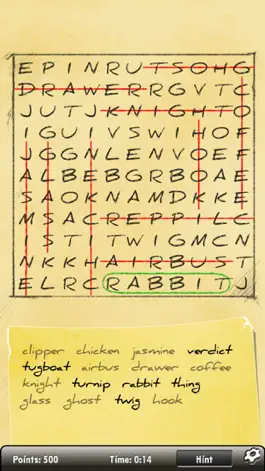 E P I N R U T S O H G
D R A W E R R G V T C
J U T J K N I G H T O
I G U I V S W I H O F
J G G N L E N V O E F
A L B E B G R B O A E
S A O K N A M D K K E
M S A C R E P P I L C
I S T I T W I G M C N
N K K H A I R B U S T
E L R C R A B B I T J
clipper chicken jasmine verdict
tugboat airbus drawer coffee
knight turnip rabbit thing
glass ghost twig hook
Points: 500 Time: 0:14 Hint